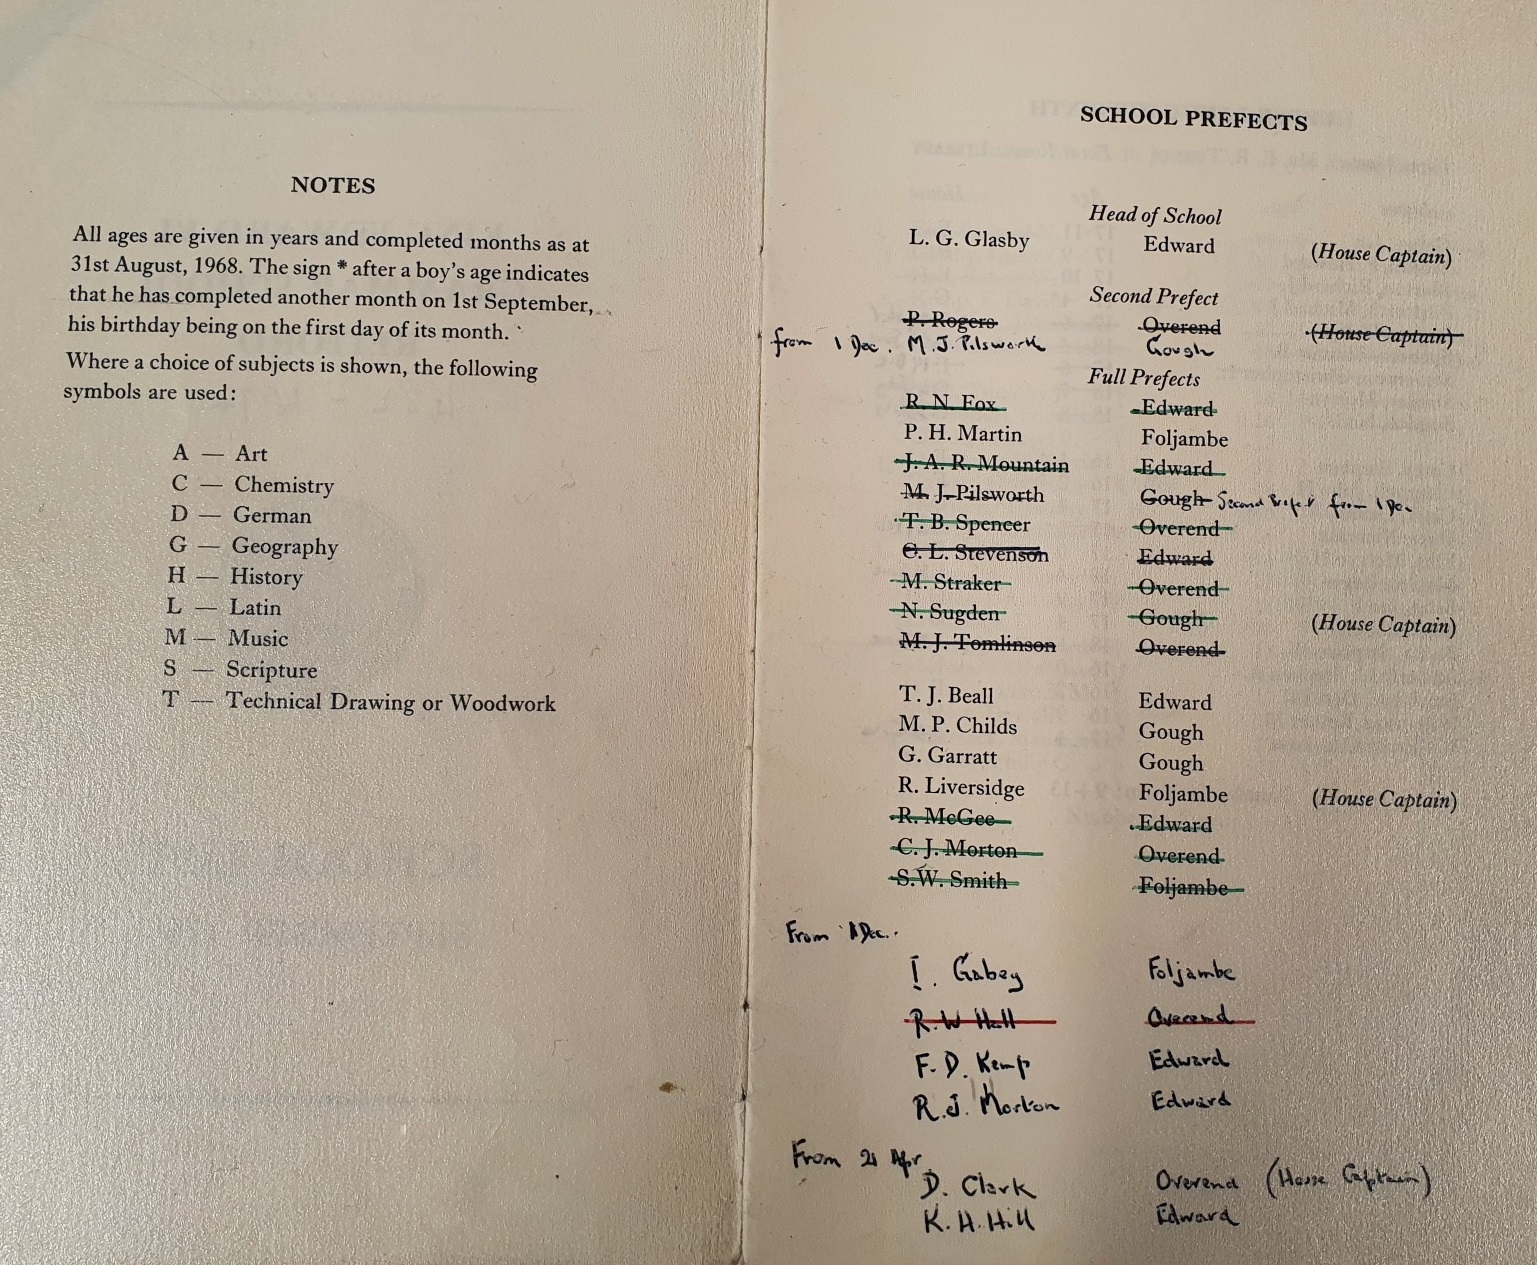 NOTES
All ages are given in years and completed months as at
31st August, 1968. The sign * after a boy's age indicates
that he has completed another month on 1st September,
his birthday being on the first day of its month.
Where a choice of subjects is shown, the following
symbols are used:
A — Art
C — Chemistry
D — German
G — Geography
H — History
L — Latin
M — Music
S — Scripture
T — Technical Drawing or Woodwork
SCHOOL PREFECTS
Head of School
L. G. Glasby Edward (House Captain)
Second Prefect
P. Rogers Overend (House Captain)
from 1 Dec. M. J. Pilsworth Gough
Full Prefects
R. N. Fox Edward
P. H. Martin Foljambe
J. A. R. Mountain Edward
M. J. Pilsworth Gough Second Prefect from 1 Dec
T. B. Spencer Overend
C. L. Stevenson Edward
M. Straker Overend
N. Sugden Gough (House Captain)
M. J. Tomlinson Overend
T. J. Beall Edward
M. P. Childs Gough
G. Garratt Gough
R. Liversidge Foljambe (House Captain)
R. McGee Edward
C. J. Morton Overend
S. W. Smith Foljambe
From 1 Dec.
I. Gabey Foljambe
R. W Hall Overend
F. D. Kemp Edward
R. J. Morton Edward
From 21 Apr
D. Clark Overend (House Captain)
K. H. Hill Edward